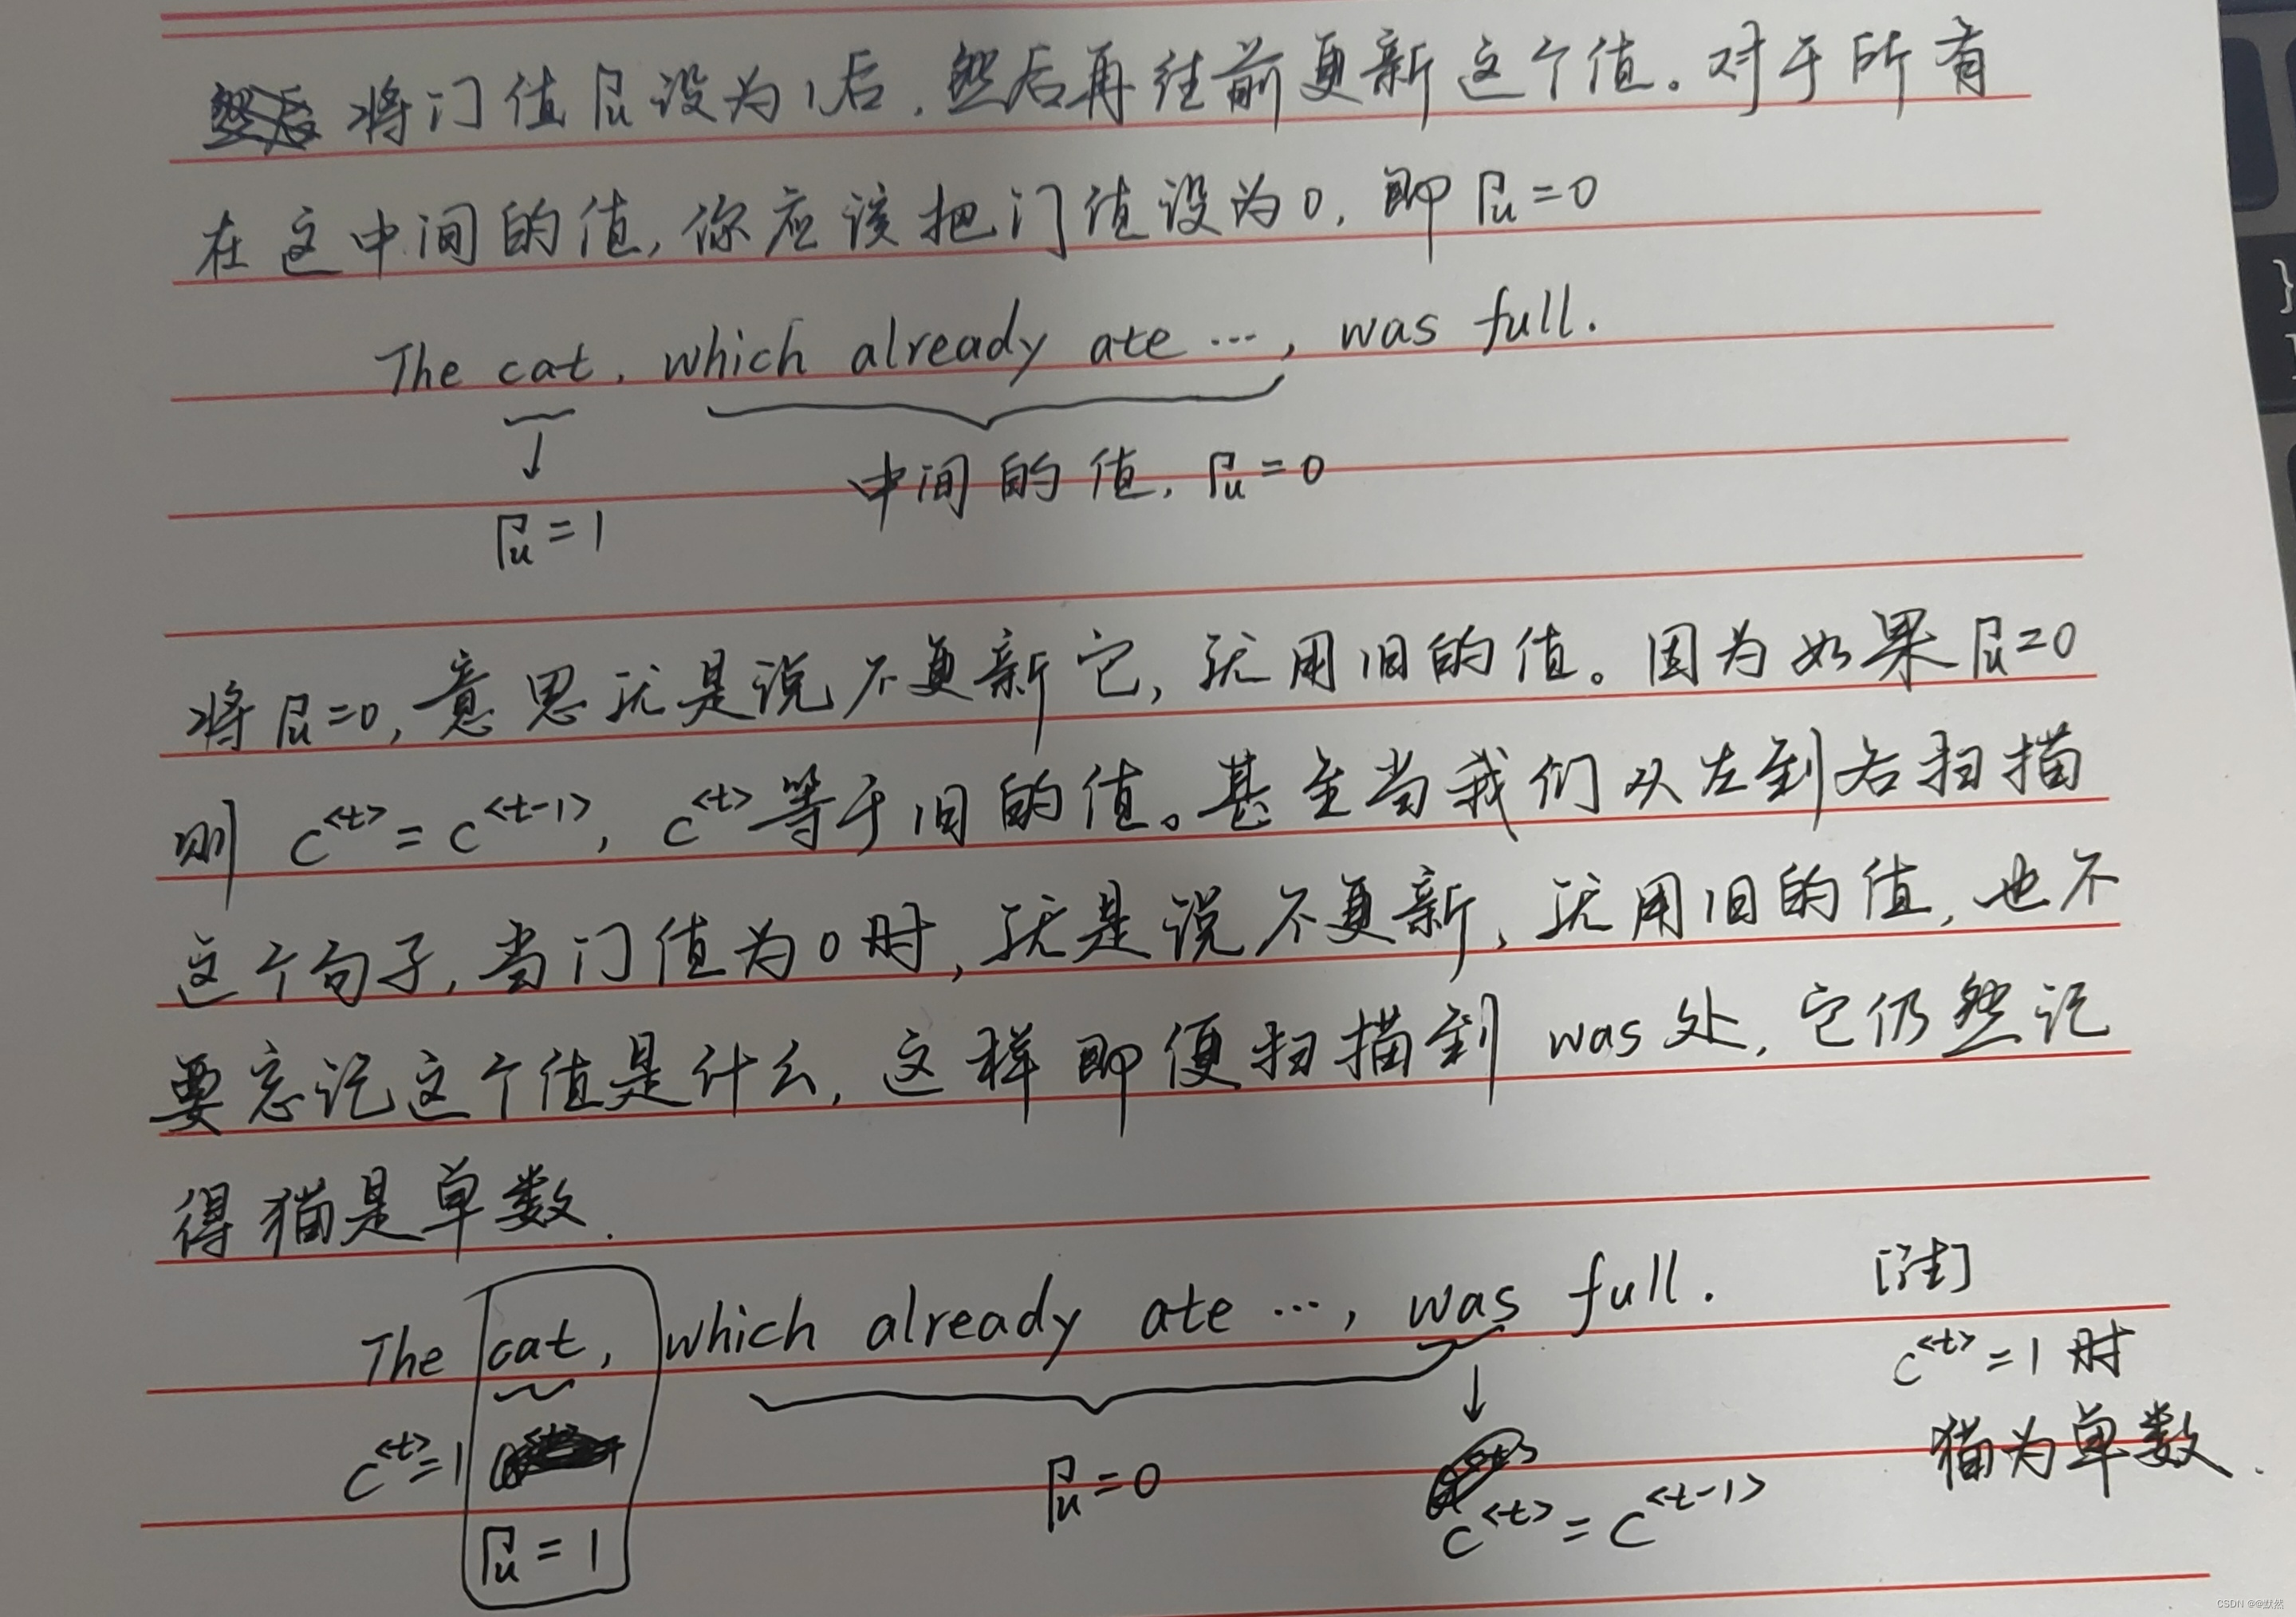 将门值Γu设为1后,然后再往前更新这个值。对于所有
在这中间的值,你应该把门值设为0,即Γu=0
The cat, which already ate ..., was full.
中间的值,Γu=0
Γu=1
将Γu=0,意思就是说不更新它,就用旧的值。因为如果Γu=0
则 c<t>=c<t-1>, c<t>等于旧的值。甚至当我们从左到右扫描
这个句子,当门值为0时,就是说不更新,就用旧的值,也不
要忘记这个值是什么,这样即便扫描到was处,它仍然记
得猫是单数.
The cat, which already ate ..., was full. [注]
c<t>=1时
猫为单数.
c<t>=1
Γu=0
c<t>=c<t-1>
Γu=1
CSDN @@默然